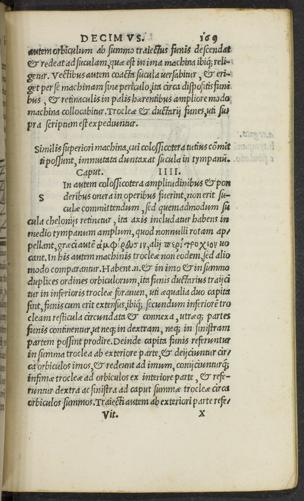 DECIMVS. 169
autem orbiculum ab summo traiectus funis descendat
& redeat ad suculam, quæ est in ima machina ibiq; reli-
getur. Vectibus autem coacta sucula versabitur, & eri-
get per se machinam sine periculo, ita circa dispositis funi
bus, & retinaculis in palis hærentibus ampliore modo
machina collocabitur. Trocleæ & ductarij funes, uti su-
pra scriptum est expediuntur.
Similis superiori machina, cui colossicotera tutius commit
ti possunt, immutata duntaxat sucula in tympanum.
Caput. IIII.
In autem colossicotera amplitudinibus & pon
S deribus onera in operibus fuerint, non erit su-
culæ committendum, sed quemadmodum su
cula chelonijs retinetur, ita axis includatur habens in
medio tympanum amplum, quod nonnulli rotam ap-
pellant, græci autẽ ἀμφίρευσιν, alij περιτρόχιον uo
cant. In his autem machinis trocleæ non eodem, sed alio
modo comparantur. Habent.n. & in imo & in summo
duplices ordines orbiculorum, ita funis ductarius traijci
tur in inferioris trocleæ foramen, uti æqualia duo capita
sint, funis cum erit extensus, ibiq; secundum inferiorẽ tro
cleam resticula circundata & connexa, utræq; partes
funis continentur, ut neq; in dextram, neq; in sinistram
partem possint prodire. Deinde capita funis referuntur
in summa troclea ab exteriore parte, & deijciuntur cir-
ca orbiculos imos, & redeunt ad imum, conijciunturq;
infimæ trocleæ ad orbiculos ex interiore parte, & refe-
runtur dextra ac sinistra ad caput summæ trocleæ circa
orbiculos summos. Traiecti autem ab exteriori parte refe-
Vit. X